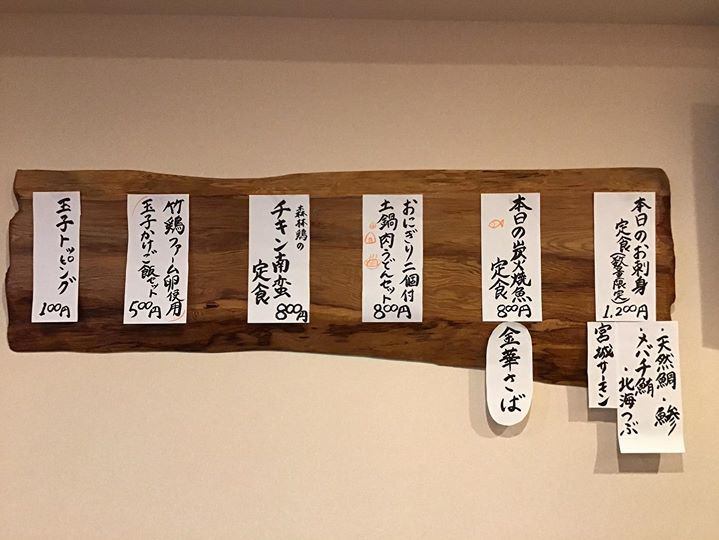 本日のお刺身
定食(数量限定)
1,200円
・天然鯛・鯵
・メバチ鮪
・北海つぶ
宮城サーモン
本日の炭火焼魚
定食
800円
金華さば
おにぎり二個付
土鍋肉うどんセット
800円
森林鶏の
チキン南蛮
定食
800円
竹鶏ファーム卵使用
玉子かけご飯セット
500円
玉子トッピング
100円